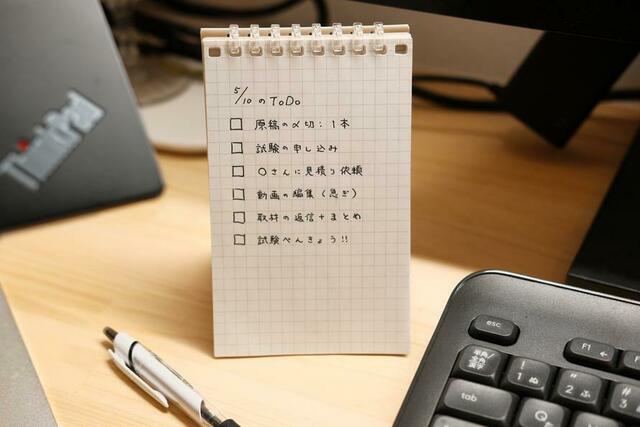 5/10のToDo
□ 原稿の〆切:1本
□ 試験の申し込み
□ ○さんに見積り依頼
□ 動画の編集(急ぎ)
□ 取材の返信+まとめ
□ 試験べんきょう!!
ThinkPad
esc
F1
半角/全角 漢字
! 1 ぬ
" 2 ふ
# 3
tab
Q
W